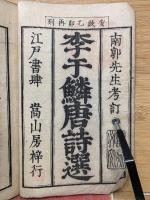 卯再刻
南郭先生考訂
李于鱗唐詩選
江戸書肆 嵩山房梓行